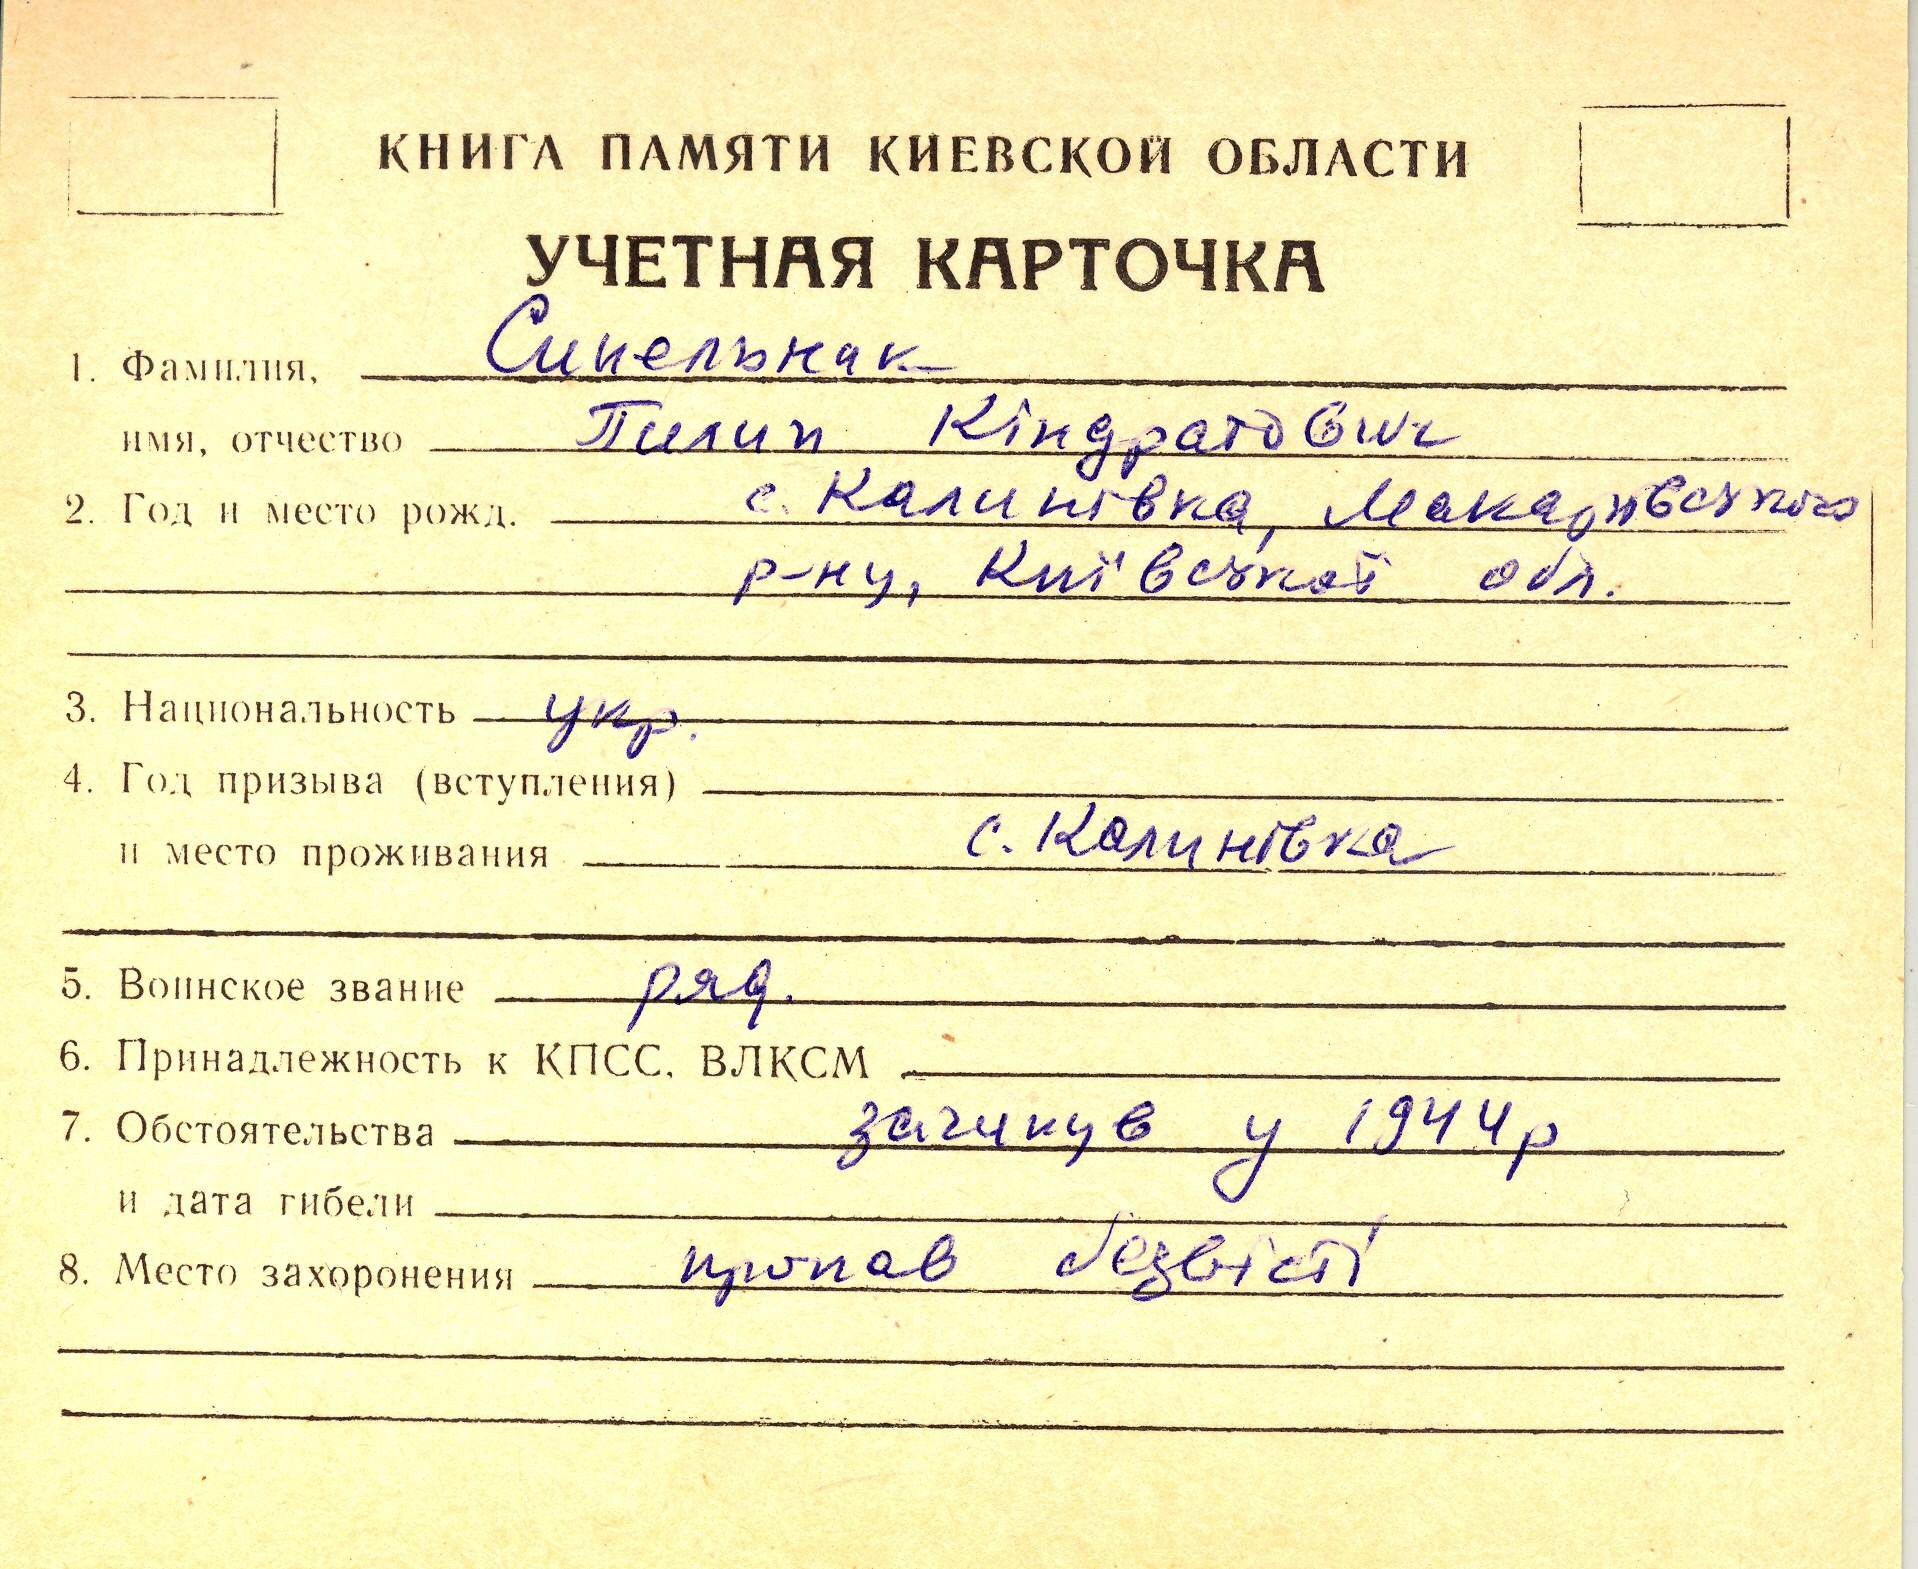 КНИГА ПАМЯТИ КИЕВСКОЙ ОБЛАСТИ
УЧЕТНАЯ КАРТОЧКА
1. Фамилия, Синельник
имя, отчество Пилип Кіндратович
2. Год и место рожд. с. Калинівка, Макарівського
р-ну, Київської обл.
3. Национальность укр.
4. Год призыва (вступления)
и место проживания с. Калинівка
5. Воинское звание ряд.
6. Принадлежность к КПСС, ВЛКСМ
7. Обстоятельства загинув у 1944 р
и дата гибели
8. Место захоронения пропав безвісті